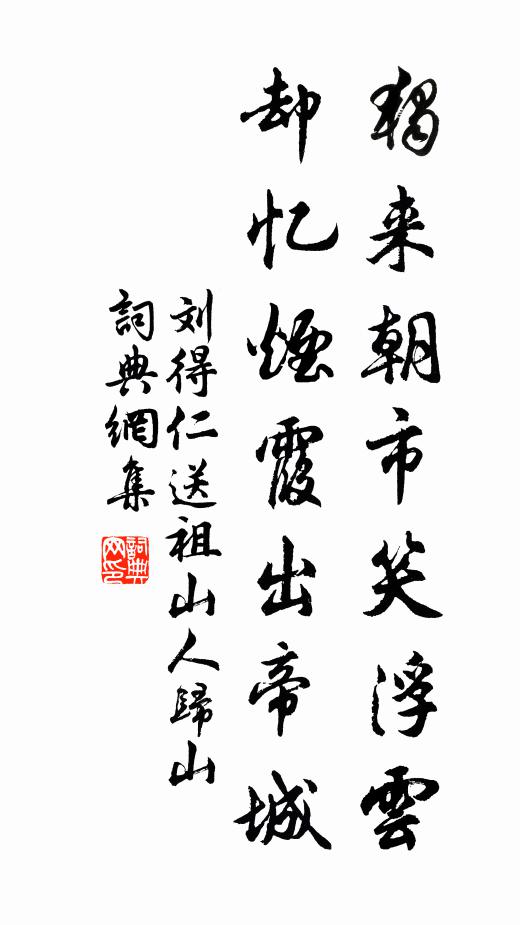 獨来朝市笑浮雲
却忆煙霞出帝城
刘得仁送祖山人歸山
詞典網集
詞典
网印